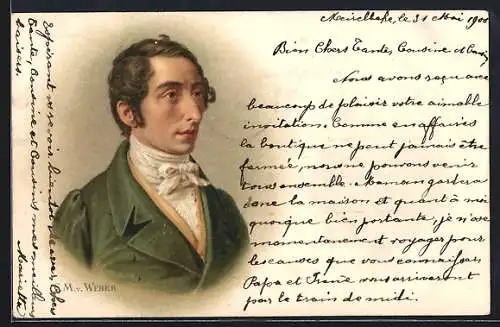 Meirelbeke, le 31 Mai 1900
Bien Chers Tante, Cousine et
Nous avons reçu avec
beaucoup de plaisir votre aimable
invitation. Comme en affaires
la boutique ne peut jamais être
fermée, nous ne pouvons venir
tous ensemble. Maman gardera
donc la maison et quant à moi
quoique bien portante, je n'ose
momentanement voyager pour
les causes que vous connaissez
Papa et Irène vous arriveront
par le train de midi.
Espérant vous voir bientôt, recevez, Chers
Tante, Cousine et Cousins mes meilleurs
baisers.
Marietta
M. v. WEBER